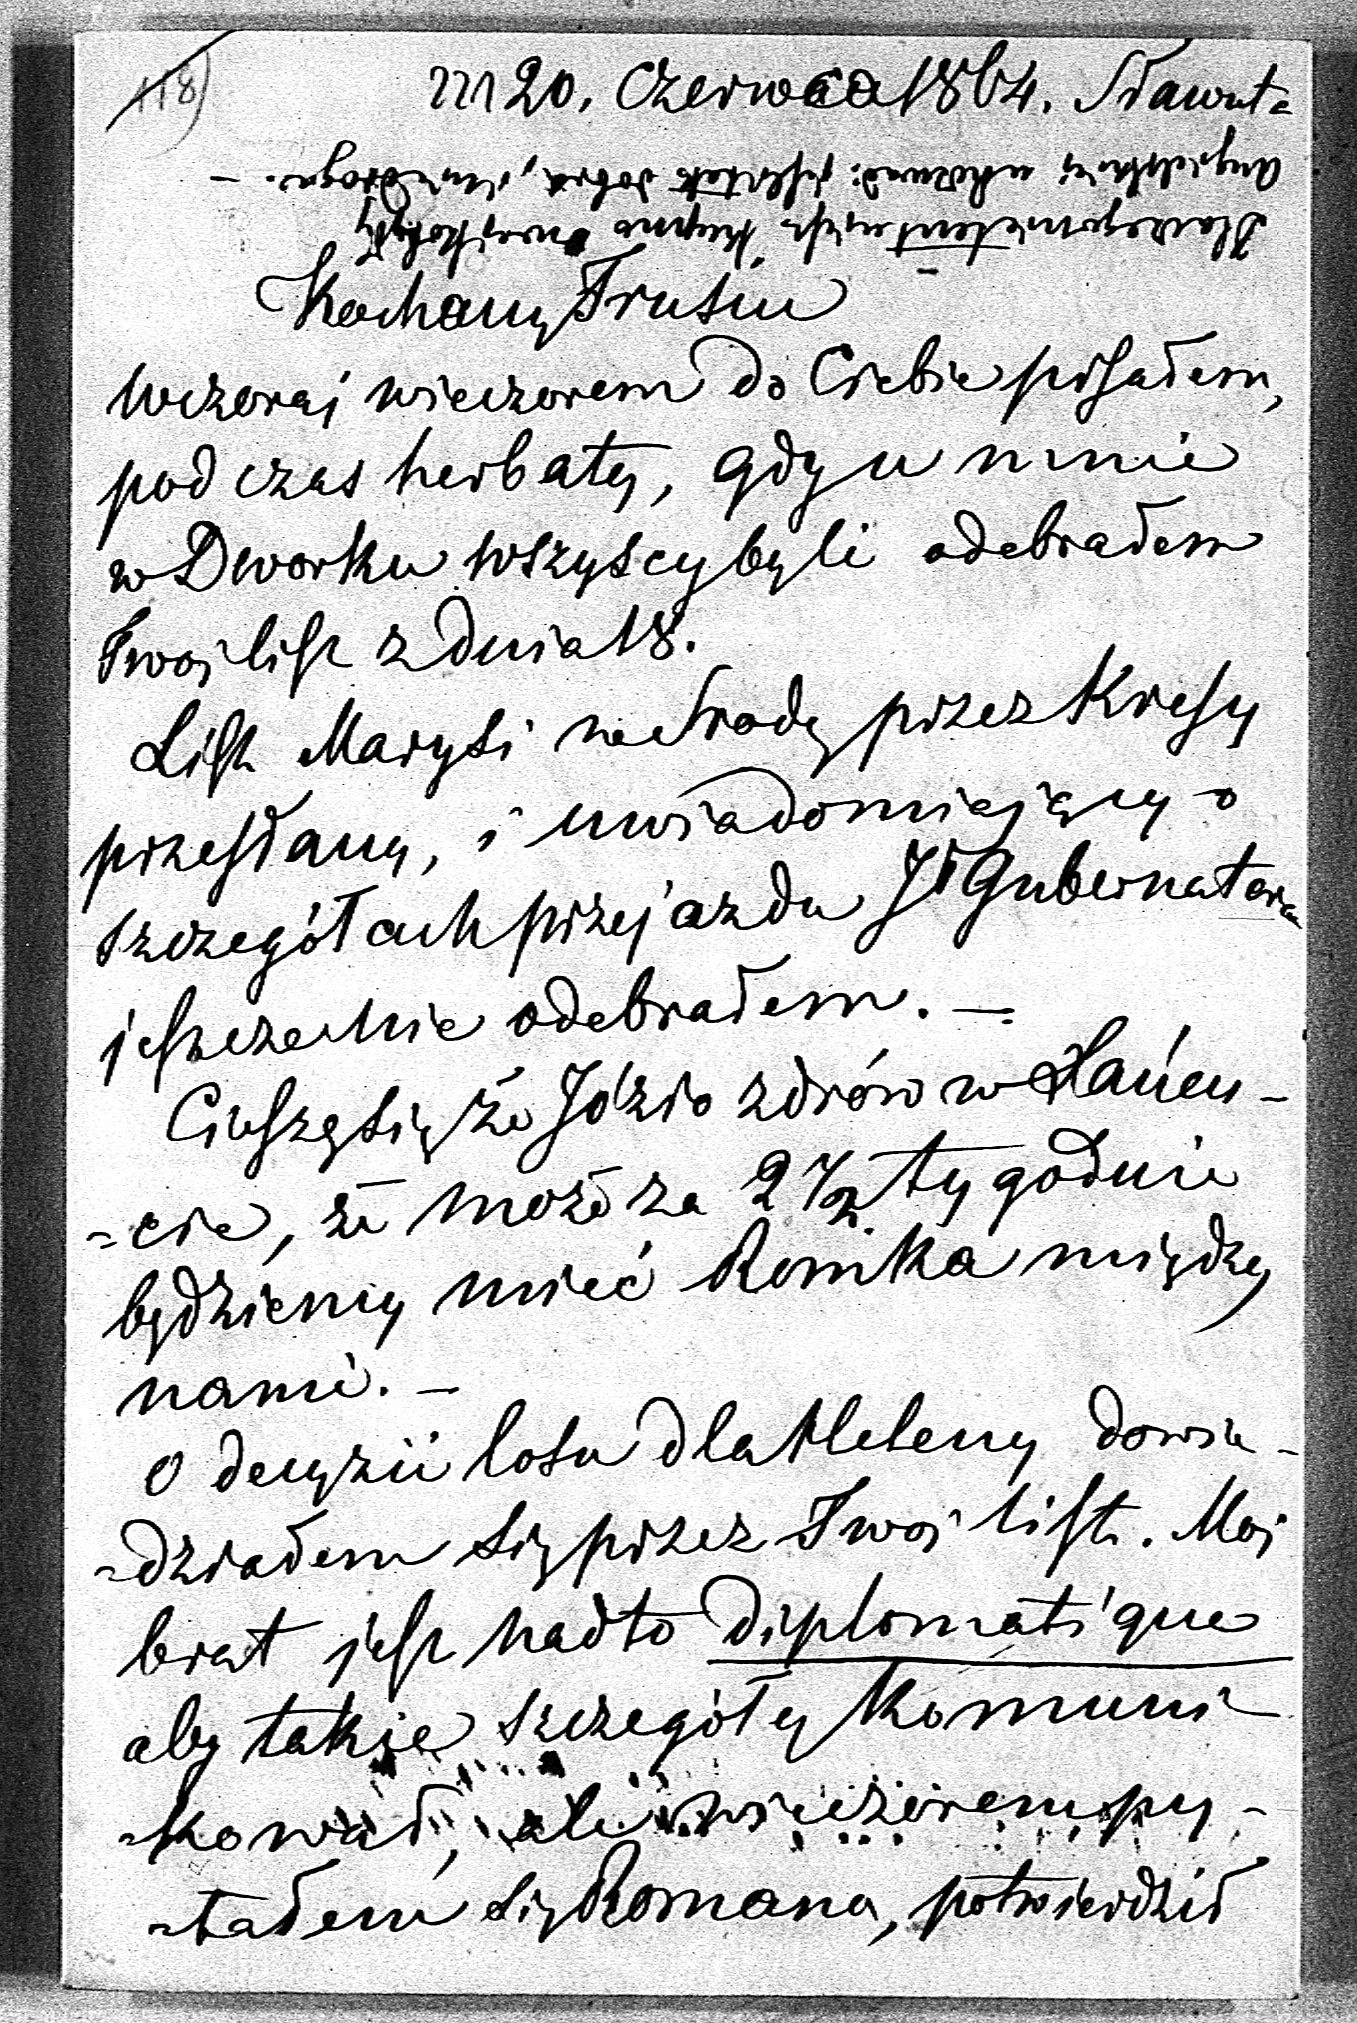 118)
20. Czerwca 1864. Sławuta
Kochany Trusiu
Wczoraj wieczorem do Ciebie pisałem,
pod czas herbaty, gdy u mnie
w Dworku wszyscy byli odebrałem
Twoj list z dnia 18.
List Marysi we Srodę przez Kresy
przesłany, i uwiadomiający o
szczegółach przejazdu Jł Gubernatora
jeszcze nie odebrałem. —
Cieszę się że Józio zdrów w Łańcu-
-cie, że może za 2 1/2 tygodnie
będziemy mieć Romka między
nami. —
O decyzii losu dla Heleny dowie-
-działem się przez Twoj list. Moj
brat jest nadto diplomatique
aby takie szczegóły komuni-
-kował, ale wieczorem py-
-tałem się Romana, potwierdził